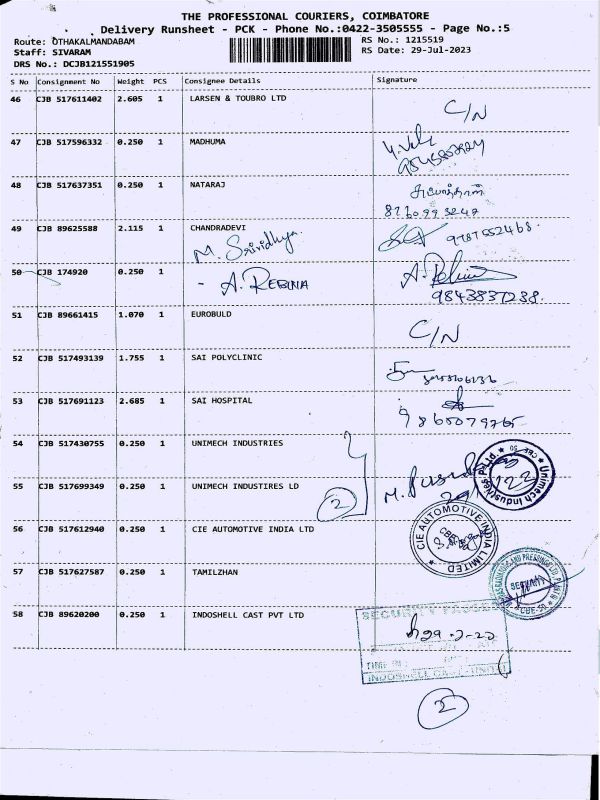 THE PROFESSIONAL COURIERS, COIMBATORE
Delivery Runsheet - PCK - Phone No.:0422-3505555 - Page No.:5
Route: OTHAKALMANDABAM RS No.: 1215519
Staff: SIVARAM RS Date: 29-Jul-2023
DRS No.: DCJB121551905
S No Consignment No Weight PCS Consignee Details Signature
46 CJB 517611402 2.605 1 LARSEN & TOUBRO LTD C/N
47 CJB 517596332 0.250 1 MADHUMA
48 CJB 517637351 0.250 1 NATARAJ
49 CJB 89625588 2.115 1 CHANDRADEVI 9787652468
M. Srividhya
50 CJB 174920 0.250 1 - A. REBINA A. Rebina
9843837238
51 CJB 89661415 1.070 1 EUROBULD C/N
52 CJB 517493139 1.755 1 SAI POLYCLINIC
53 CJB 517691123 2.685 1 SAI HOSPITAL
9865079765
54 CJB 517430755 0.250 1 UNIMECH INDUSTRIES
55 CJB 517699349 0.250 1 UNIMECH INDUSTIRES LD 2
Unimech Industries P Ltd. CBE-50 122
56 CJB 517612940 0.250 1 CIE AUTOMOTIVE INDIA LTD
CIE AUTOMOTIVE INDIA LIMITED
57 CJB 517627587 0.250 1 TAMILZHAN
SECURITY CBE-50
58 CJB 89620200 0.250 1 INDOSHELL CAST PVT LTD
SECURITY
TIME IN
2